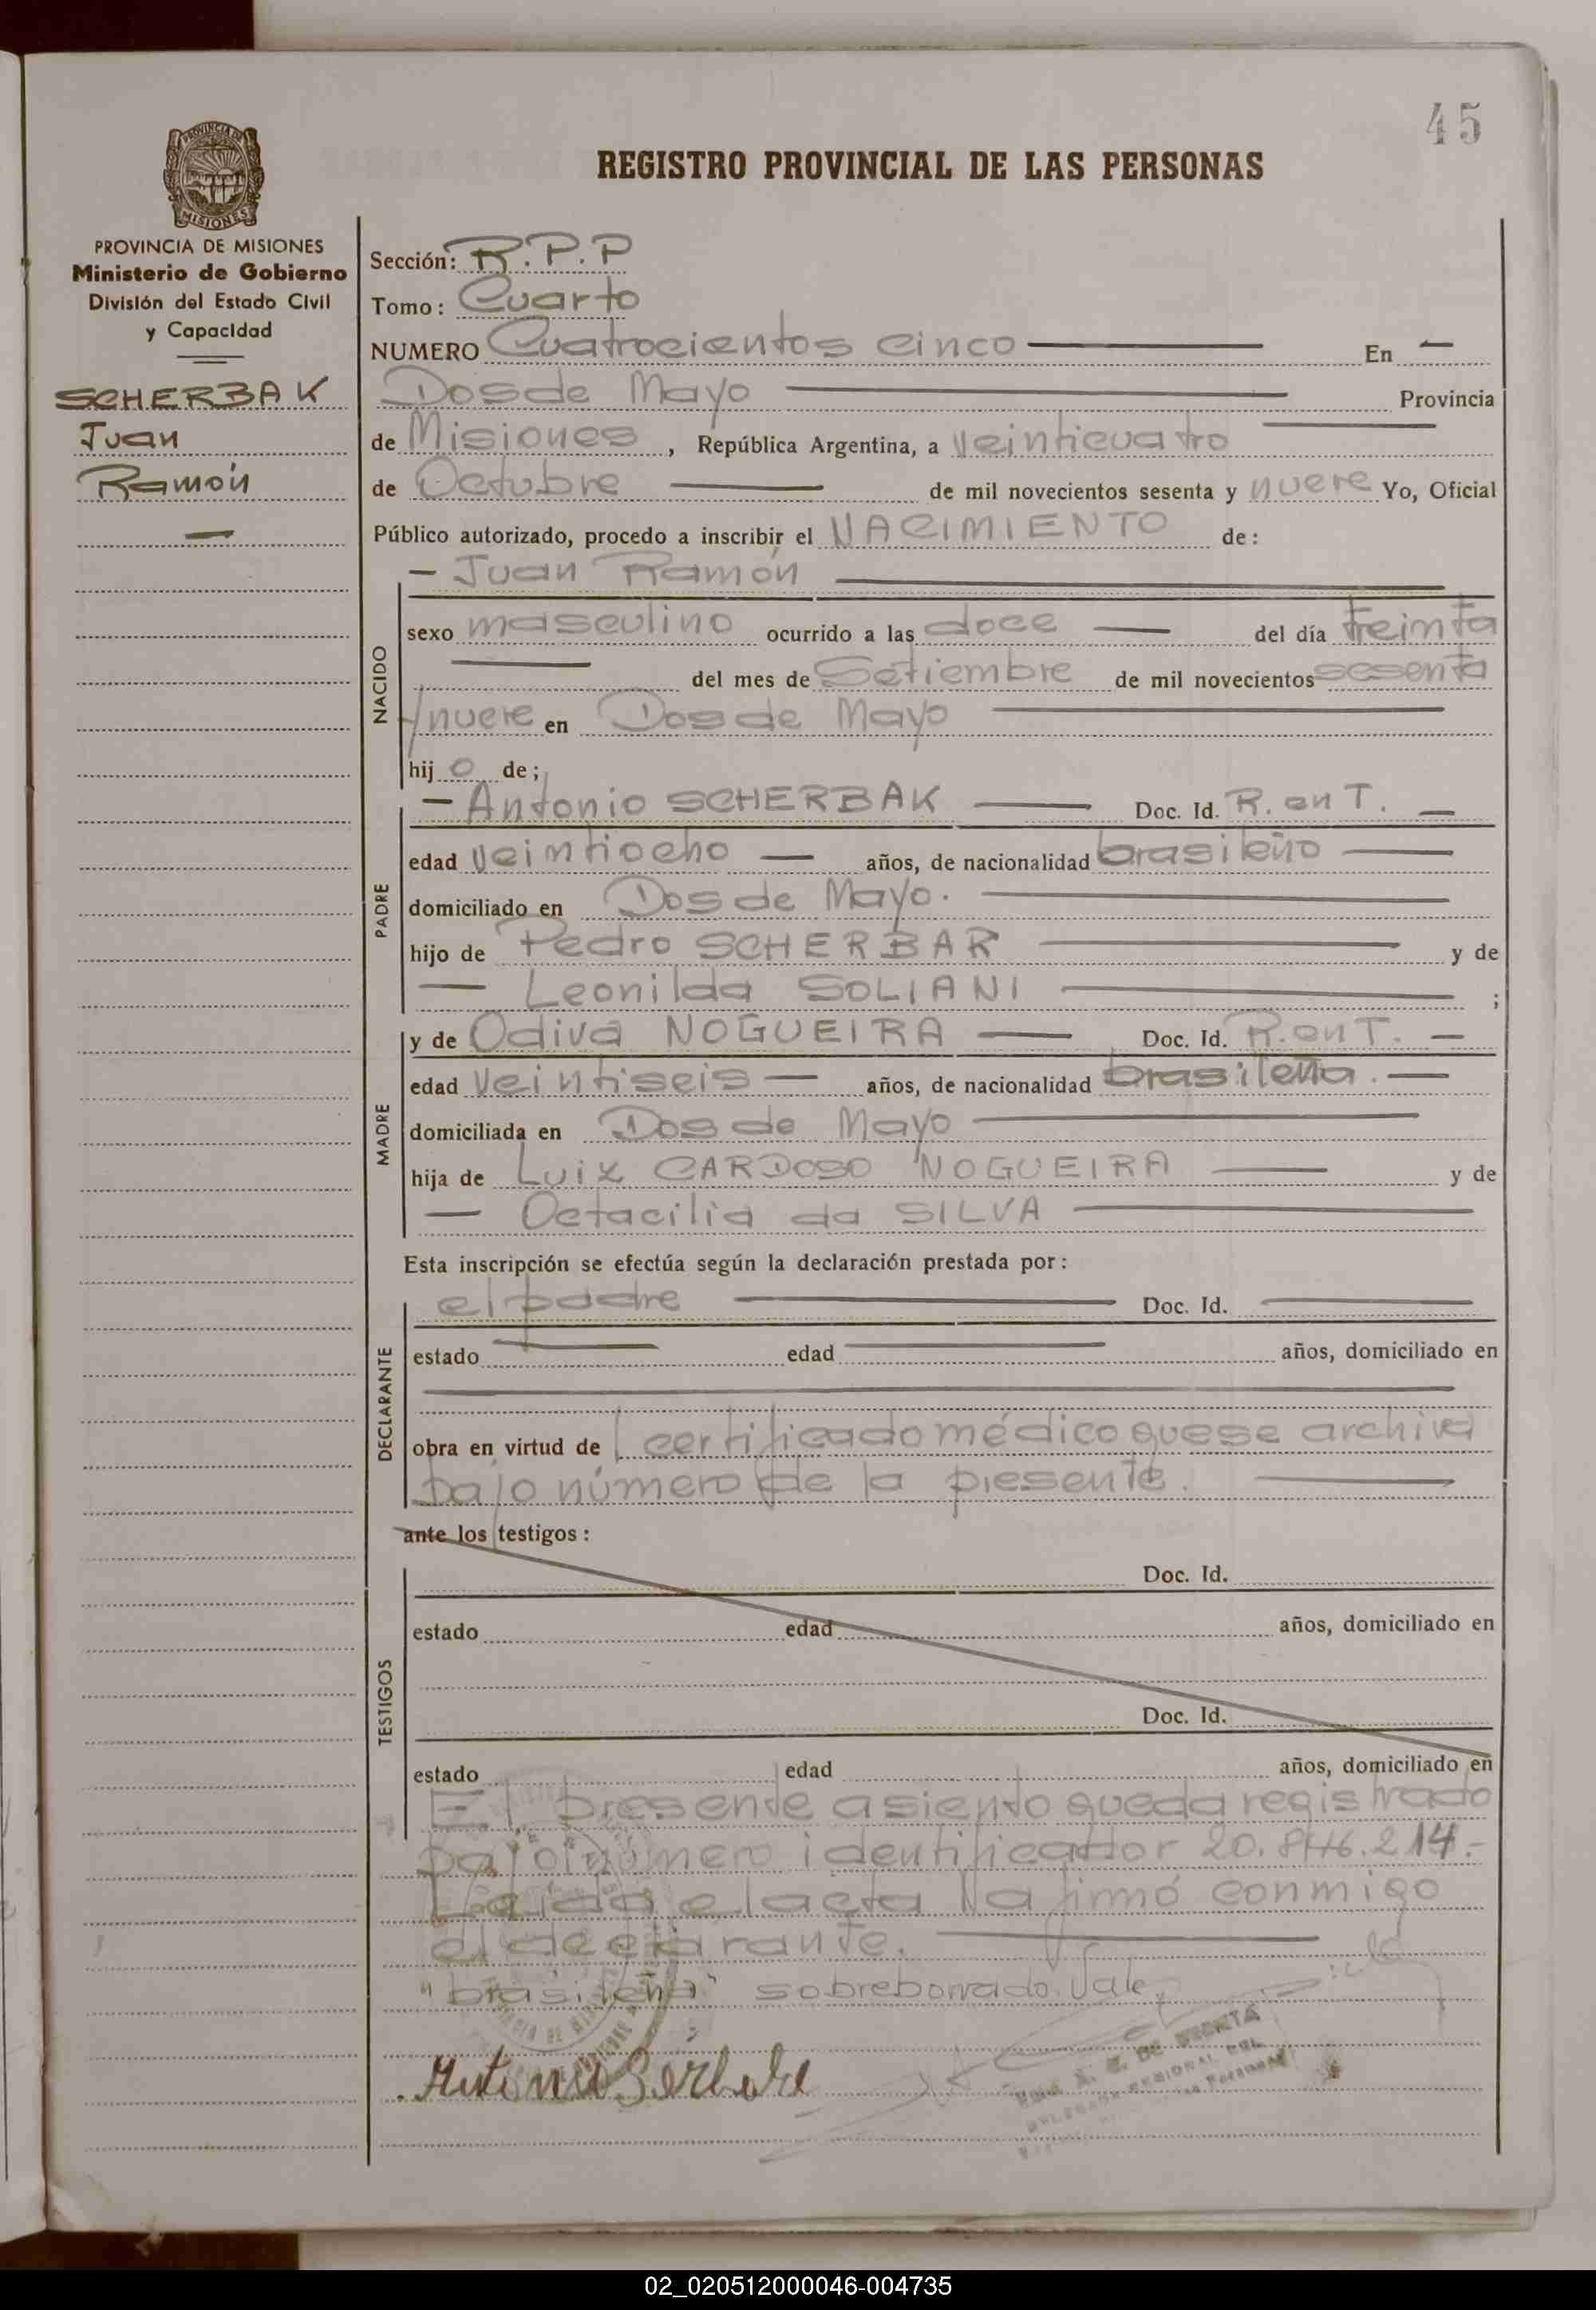 45
REGISTRO PROVINCIAL DE LAS PERSONAS
PROVINCIA DE MISIONES
Ministerio de Gobierno
División del Estado Civil
y Capacidad
SCHERBAK
Juan
Ramón
Sección: R.P.P
Tomo: Cuarto
NUMERO Cuatrocientos cinco En
Dos de Mayo Provincia
de Misiones, República Argentina, a veinticuatro
de Octubre de mil novecientos sesenta y nueve Yo, Oficial
Público autorizado, procedo a inscribir el NACIMIENTO de:
NACIDO
- Juan Ramón
sexo masculino ocurrido a las doce del día treinta
del mes de Setiembre de mil novecientos sesenta
y nueve en Dos de Mayo
hijo de;
PADRE
- Antonio SCHERBAK Doc. Id. R. en T.
edad veintiocho años, de nacionalidad brasileño
domiciliado en Dos de Mayo.
hijo de Pedro SCHERBAR y de
Leonilda SOLIANI ;
MADRE
y de Odiva NOGUEIRA Doc. Id. R. en T.
edad veintiseis años, de nacionalidad brasileña.
domiciliada en Dos de Mayo
hija de Luiz CARDOSO NOGUEIRA y de
Octacilia da SILVA
Esta inscripción se efectúa según la declaración prestada por:
DECLARANTE
el padre Doc. Id.
estado edad años, domiciliado en
obra en virtud de certificado médico que se archiva
bajo número de la presente.
ante los testigos:
TESTIGOS
Doc. Id.
estado edad años, domiciliado en
Doc. Id.
estado edad años, domiciliado en
El presente asiento queda registrado
bajo número identificador 20.846.214.-
Leída el acta la firmó conmigo
el declarante.
"brasileña" sobreborrado. Vale.
02_020512000046-004735